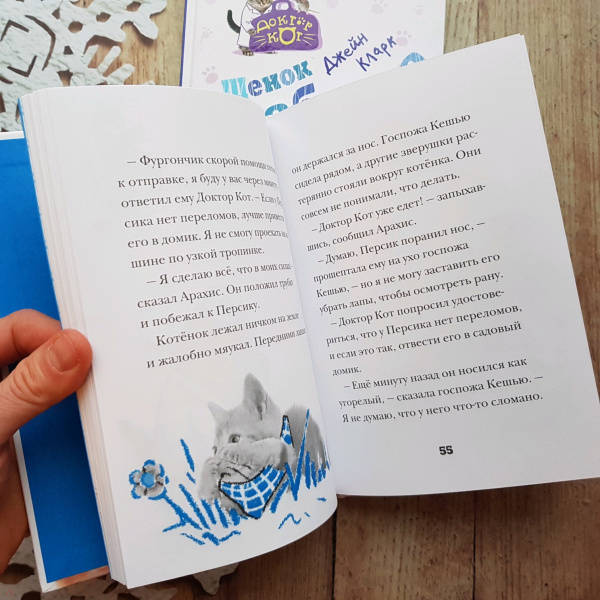 ДОКТОР
КОТ
Щенок
Джейн
Кларк
— Фургончик скорой помощи
к отправке, я буду у вас через
ответил ему Доктор Кот. —
сика нет переломов, лучше
его в домик. Я не смогу проехать
шине по узкой тропинке.
— Я сделаю всё, что в моих
сказал Арахис. Он положил
и побежал к Персику.
Котёнок лежал ничком на земле
и жалобно мяукал. Передними
он держался за нос. Госпожа Кешью
сидела рядом, а другие зверушки рас-
терянно стояли вокруг котёнка. Они
совсем не понимали, что делать.
— Доктор Кот уже едет! — запыхав-
шись, сообщил Арахис.
— Думаю, Персик поранил нос, —
прошептала ему на ухо госпожа
Кешью, — но я не могу заставить его
убрать лапы, чтобы осмотреть рану.
— Доктор Кот попросил удостове-
риться, что у Персика нет переломов,
и если это так, отвести его в садовый
домик.
— Ещё минуту назад он носился как
угорелый, — сказала госпожа Кешью. —
Я не думаю, что у него что-то сломано.
55